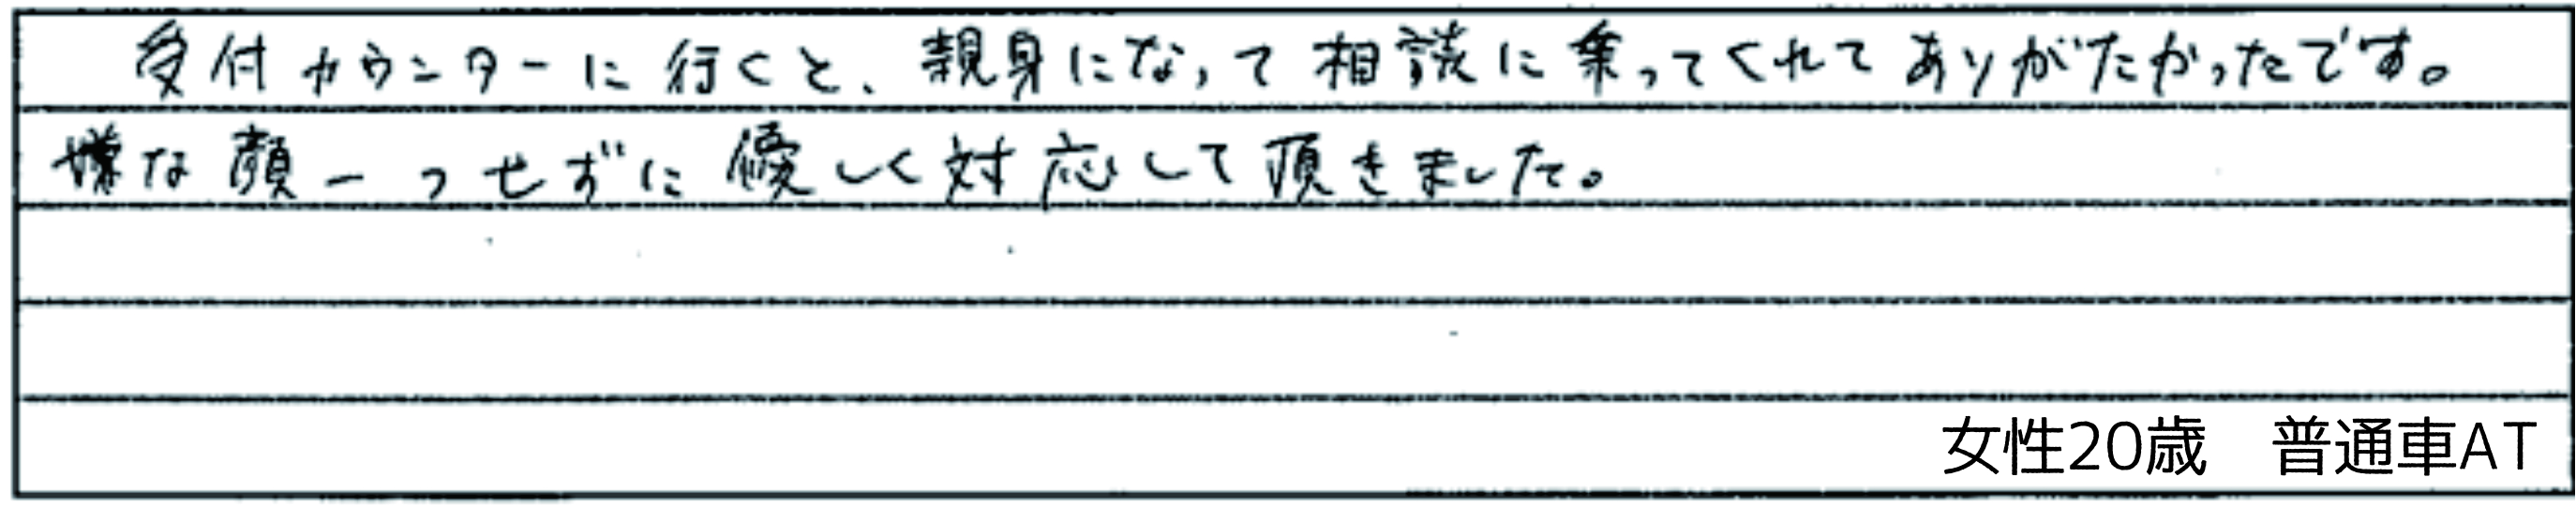 受付カウンターに行くと、親身になって相談に乗ってくれてありがたかったです。
嫌な顔一つせずに優しく対応して頂きました。
女性20歳　普通車AT